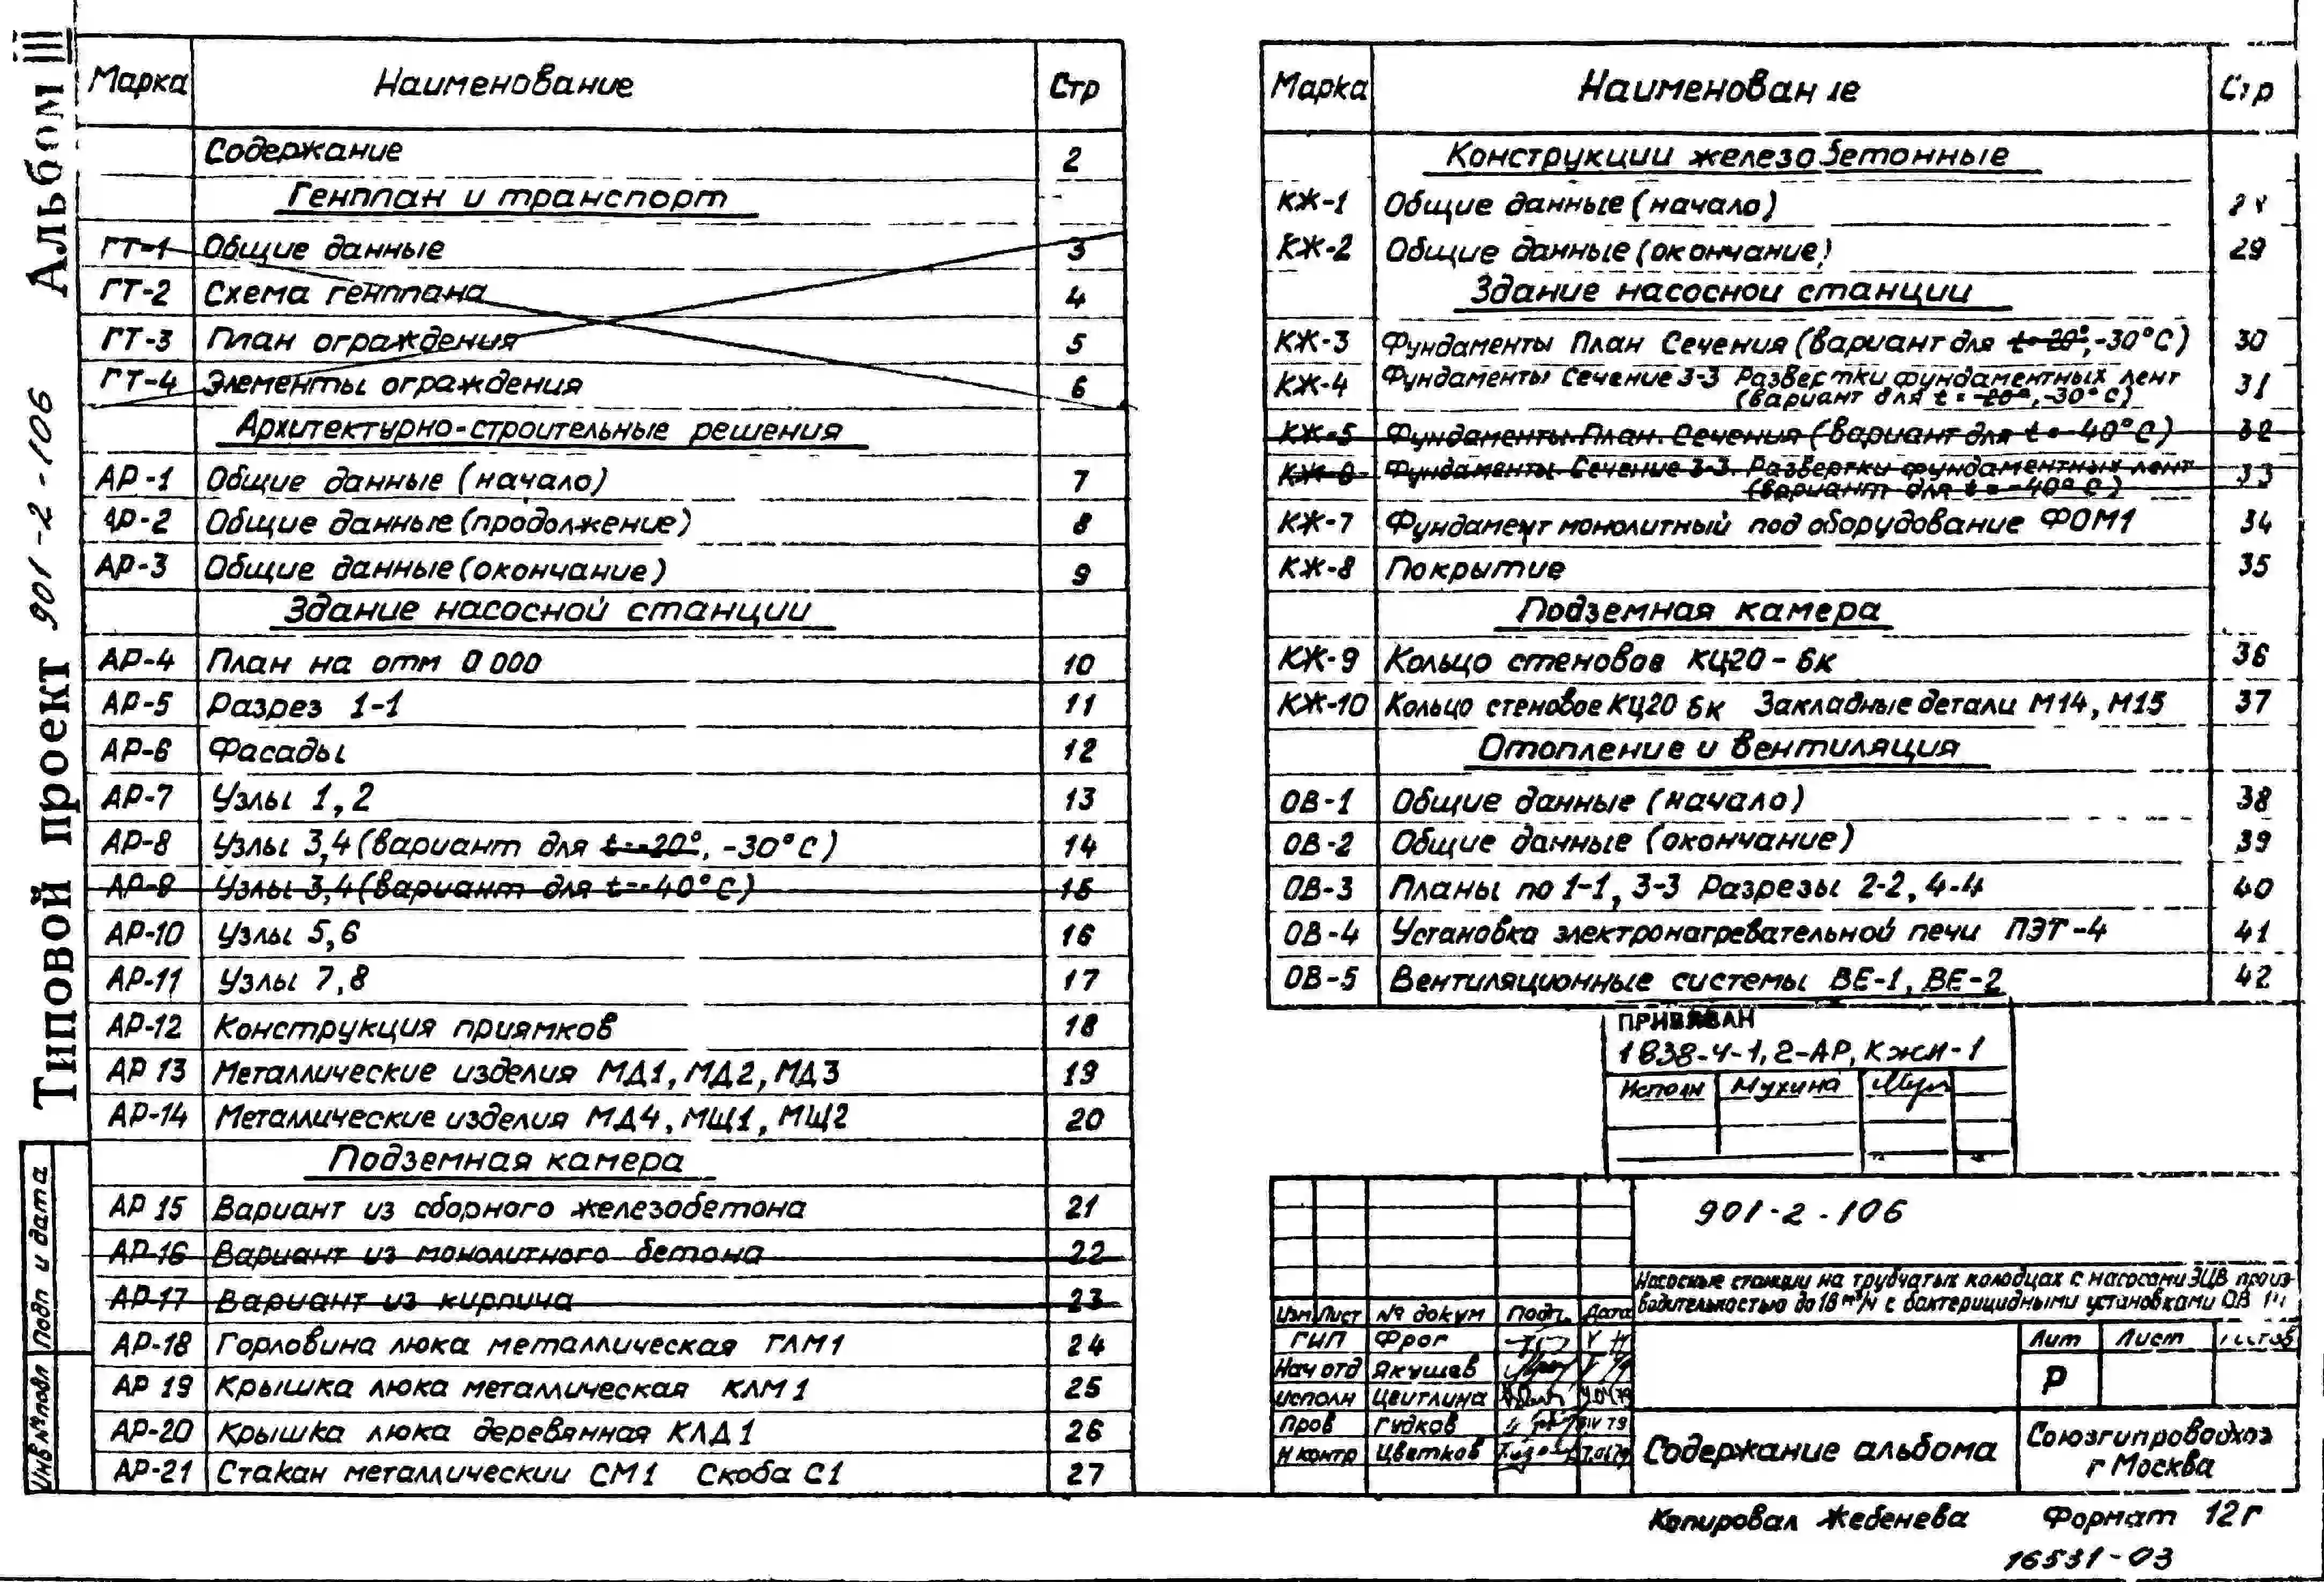 Типовой проект 901-2-106 Альбом III
Марка Наименование Стр
Содержание 2
Генплан и транспорт
ГТ-1 Общие данные 3
ГТ-2 Схема генплана 4
ГТ-3 План ограждения 5
ГТ-4 Элементы ограждения 6
Архитектурно-строительные решения
АР-1 Общие данные (начало) 7
АР-2 Общие данные (продолжение) 8
АР-3 Общие данные (окончание) 9
Здание насосной станции
АР-4 План на отм 0 000 10
АР-5 Разрез 1-1 11
АР-6 Фасады 12
АР-7 Узлы 1,2 13
АР-8 Узлы 3,4 (вариант для t=-20°, -30°С) 14
АР-9 Узлы 3,4 (вариант для t=-40°С) 15
АР-10 Узлы 5,6 16
АР-11 Узлы 7,8 17
АР-12 Конструкция приямков 18
АР 13 Металлические изделия МД1, МД2, МД3 19
АР-14 Металлические изделия МД4, МЩ1, МЩ2 20
Подземная камера
АР 15 Вариант из сборного железобетона 21
АР-16 Вариант из монолитного бетона 22
АР-17 Вариант из кирпича 23
АР-18 Горловина люка металлическая ГЛМ1 24
АР 19 Крышка люка металлическая КЛМ1 25
АР-20 Крышка люка деревянная КЛД1 26
АР-21 Стакан металлический СМ1 Скоба С1 27
Подп и дата
Инв № подл
Марка Наименование Стр
Конструкции железобетонные
КЖ-1 Общие данные (начало)
КЖ-2 Общие данные (окончание) 29
Здание насосной станции
КЖ-3 Фундаменты План Сечения (вариант для t=-20°, -30°С) 30
КЖ-4 Фундаменты Сечение 3-3 Развертки фундаментных лент 31
(вариант для t=-20°, -30°С)
КЖ-5 Фундаменты План. Сечения (вариант для t=-40°С) 32
КЖ-6 Фундаменты. Сечение 3-3. Развертки фундаментных лент 33
(вариант для t=-40°С)
КЖ-7 Фундамент монолитный под оборудование ФОМ1 34
КЖ-8 Покрытие 35
Подземная камера
КЖ-9 Кольцо стеновое КЦ20-6к 36
КЖ-10 Кольцо стеновое КЦ20 6к Закладные детали М14, М15 37
Отопление и вентиляция
ОВ-1 Общие данные (начало) 38
ОВ-2 Общие данные (окончание) 39
ОВ-3 Планы по 1-1, 3-3 Разрезы 2-2, 4-4 40
ОВ-4 Установка электронагревательной печи ПЭТ-4 41
ОВ-5 Вентиляционные системы ВЕ-1, ВЕ-2 42
ПРИВЯЗАН
1838-Ч-1,2-АР, КЖИ-1
Исполн Мухина
901-2-106
Насосные станции на трубчатых колодцах с насосами ЭЦВ произ-
водительностью до 16 м³/ч с бактерицидными установками ОВ
Изм Лист № докум Подп. Дата
Лит Лист Листов
Р
ГИП Фрог
Нач отд Якушев
Исполн Цейтлина
Пров Гудков IV 79
Н контр Цветков
Содержание альбома
Союзгипроводхоз
г Москва
Копировал Жебенева Формат 12г
16531-03